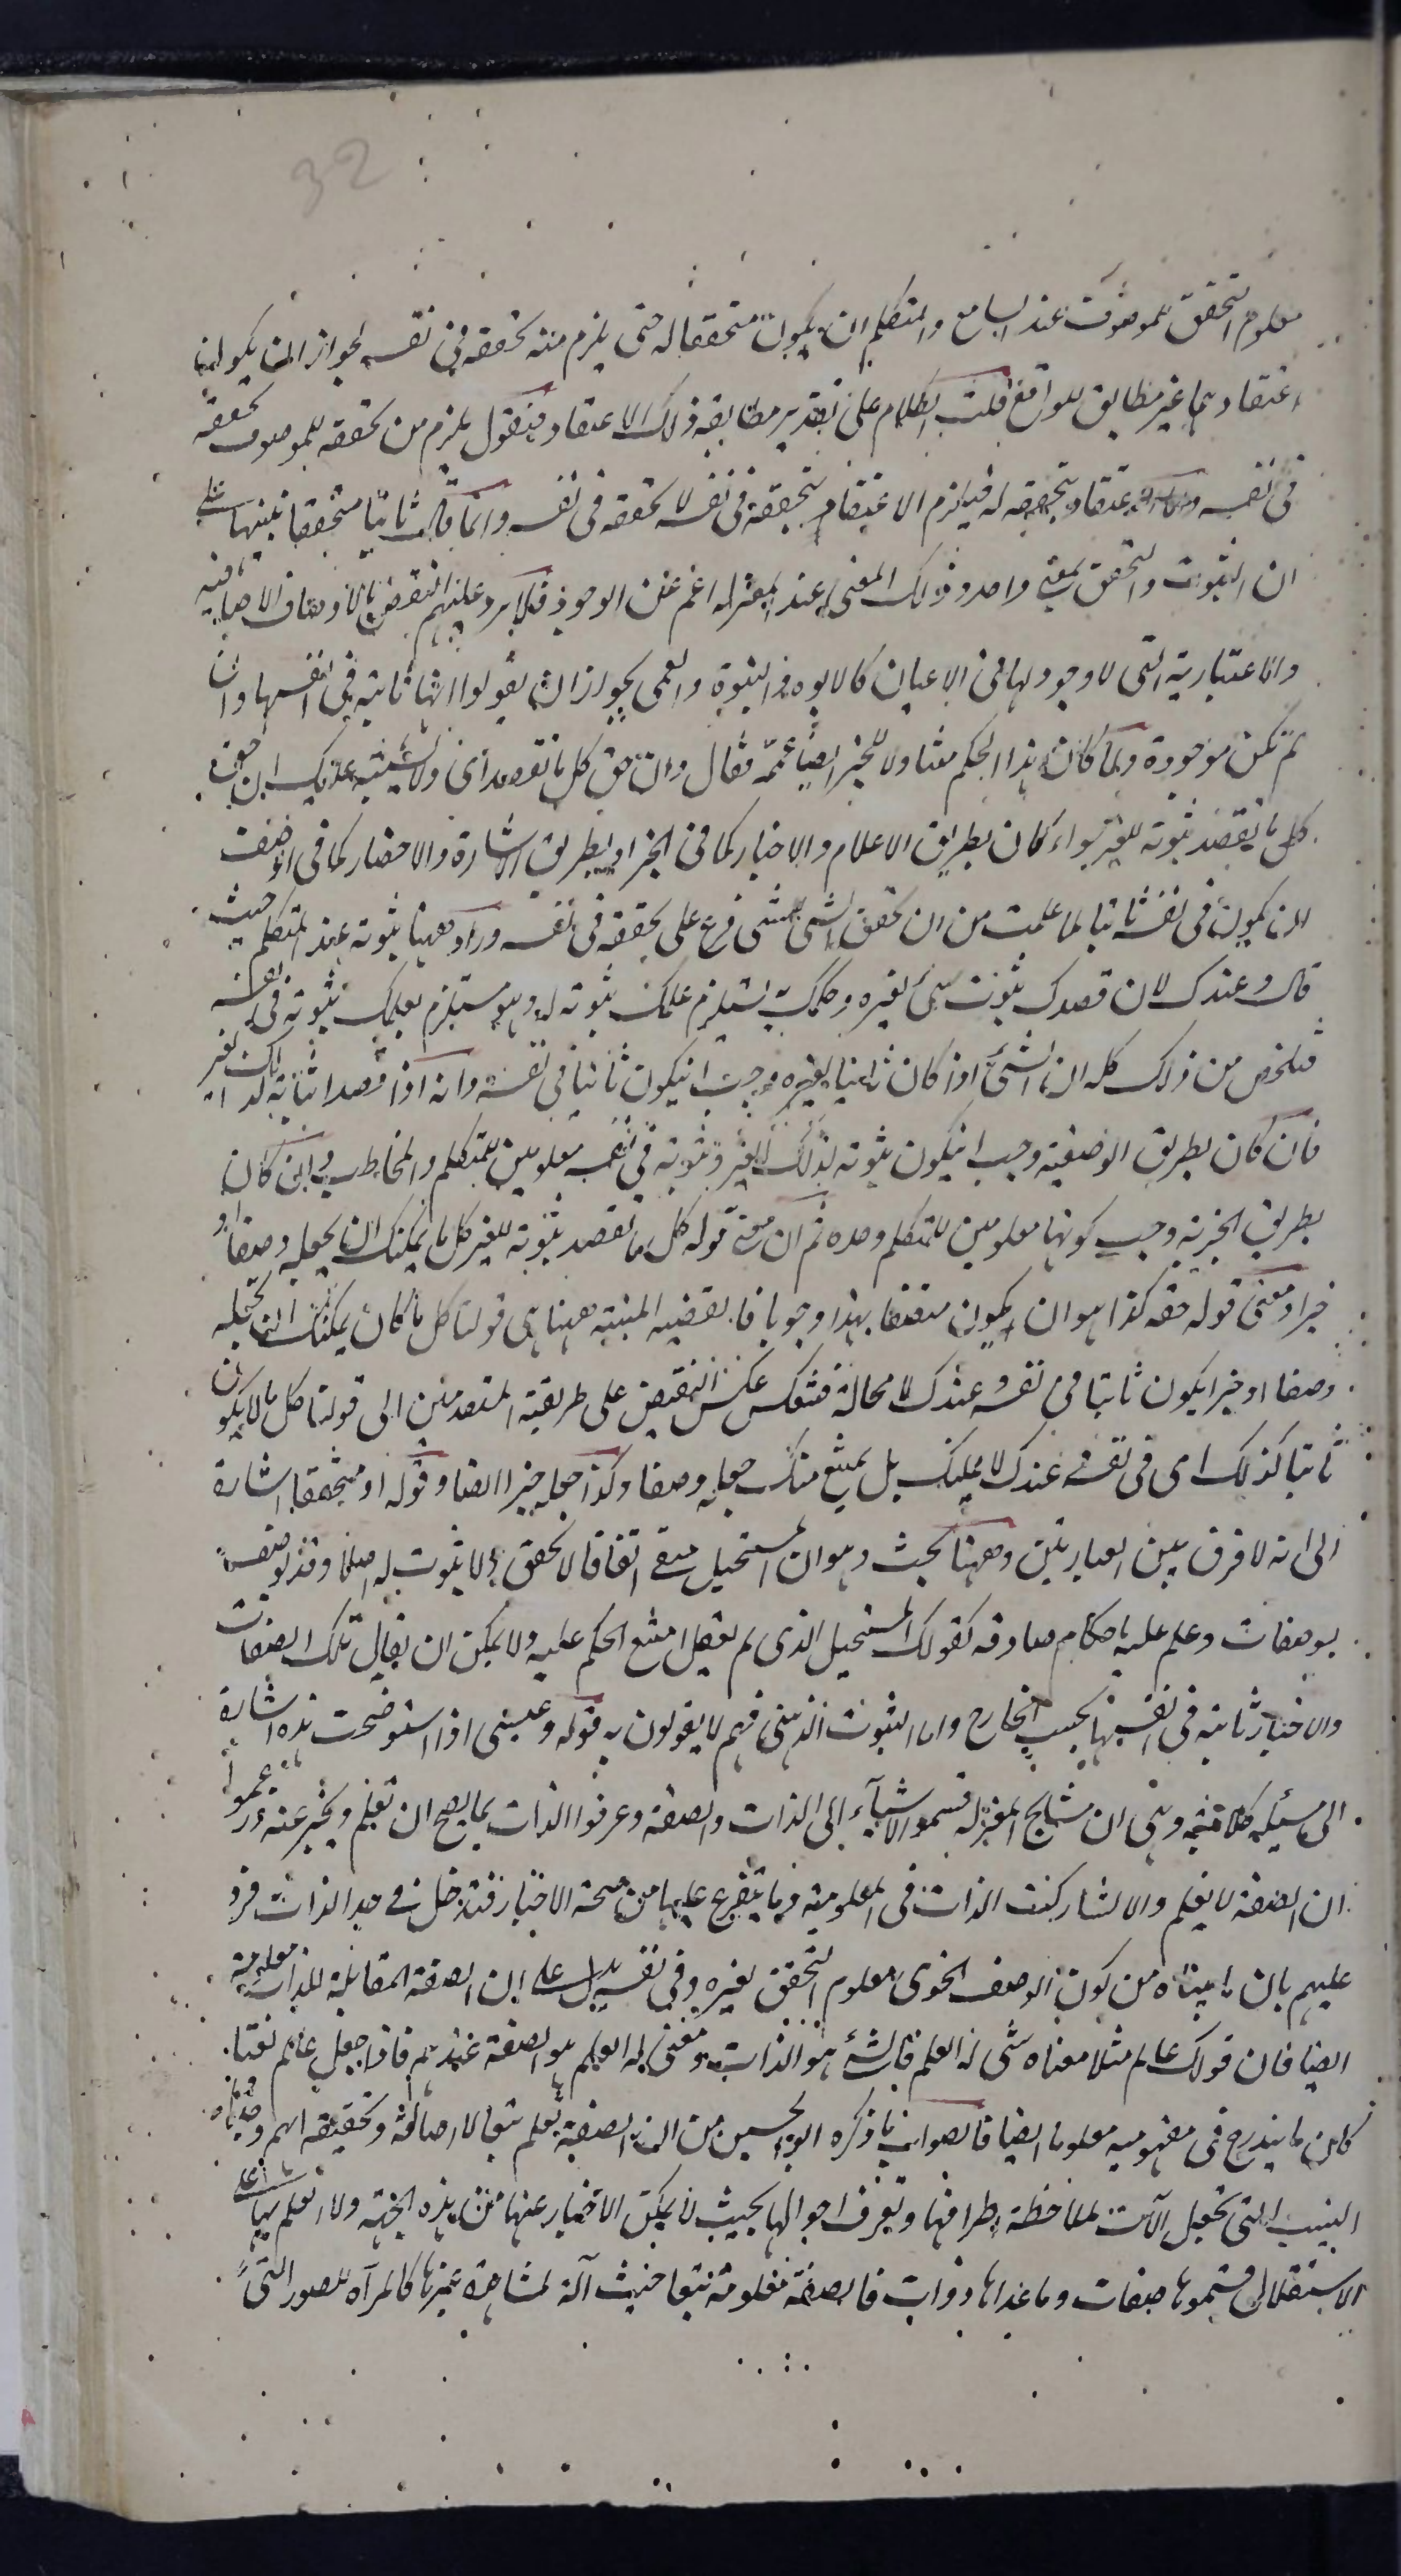 32
معلوم التحقق للموصوف عند السامع والمتكلم ان يكون متحققا له حتى يلزم منه تحققه فى نفسه لجواز ان يكون
اعتقادهما غير مطابق للواقع قلت الكلام على تقدير مطابقه ذلك الاعتقاد فنقول يلزم من تحققه للموصوف تحققه
فى نفسه ومن اعتقاد تحققه له فيلزم الاعتقاد بتحققه فى نفسه لا تحققه فى نفسه وانما قال ثابتا متحققا تنبيها على
ان الثبوت والتحقق بمعنى واحد وذلك المعنى عند المعتزله اعم من الوجود فلا يرد عليهم النقض بالاوصاف الاضافيه
والاعتبارية التى لا وجود لها فى الاعيان كالابوه والبنوة والعمى لجواز ان يقولوا انها ثابتة فى انفسها وان
لم تكن موجودة ولما كان هذا الحكم متناولا للخبر ايضا عممه فقال وان حق كل ما تقصد اى ولا يشتبه عليك ان حق
كل ما تقصد ثبوته للغير سواء كان بطريق الاعلام والاخبار كما فى الخبر او بطريق الاشارة والاحضار كما فى الوصف
ان يكون فى نفسه ثابتا لما علمت من ان تحقق الشى للشى فرع على تحققه فى نفسه وزاد ههنا ثبوته عند المتكلم حيث
قال وعندك لان قصدك ثبوت شى لغيره وحكمك به يستلزم علمك بثبوته له وهو مستلزم لعلمك بثبوته فى نفسه
فتلخص من ذلك كله ان الشئ اذا كان ثابتا لغيره وجب ان يكون ثابتا فى نفسه وانه اذا قصد اثباته لذلك الغير
فان كان بطريق الوصفيه وجب ان يكون ثبوته لذلك الغير وثبوته فى نفسه معلومين للمتكلم والمخاطب وان كان
بطريق الخبريه وجب كونهما معلومين للمتكلم وحده ثم ان معنى قوله كل ما تقصد ثبوته للغير كل ما يمكنك ان تجعله وصفا او
خبرا ومعنى قوله حقه كذا هو ان يكون متصفا بهذا وجوبا فالقضيه المبينه ههنا هى قولنا كل ما كان يمكنك ان تجعله
وصفا او خبرا يكون ثابتا فى نفسه وعندك لا محالة فتنعكس عكس النقيض على طريقة المتقدمين الى قولنا كل ما لا يكون
ثابتا كذلك اى فى نفسه وعندك لا يمكنك بل يمتنع منك جعله وصفا وكذا جعله خبرا ايضا وقوله او متحققا اشارة
الى انه لا فرق بين العبارتين وههنا بحث وهو ان المستحيل منفى اتفاقا لا تحقق ولا ثبوت له اصلا وقد يوصف
بوصفات وحكم عليه باحكام صادقه كقولك المستحيل الذى لم يعقل امتنع الحكم عليه ولا يمكن ان يقال تلك الصفات
والاخبار ثابته فى انفسها بحسب الخارج واما الثبوت الذهنى فهم لا يقولون به قوله وعسى اذا استوضحت هذه اشارة
الى مسئله كلاميه وهى ان مشايخ المعتزله قسموا الاشياء الى الذات والصفة وعرفوا الذات بما يصح ان تعلم ويخبر عنه وزعموا
ان الصفة لا يعلم والا لشاركت الذات فى المعلومية وما يتفرع عليها من صحة الاخبار فتدخل فى حد الذات فرد
عليهم بان ما بيناه من كون الوصف النحوى معلوم التحقق لغيره وفى نفسه يدل على ان الصفة المقابلة للذات معلومة
ايضا فان قولك عالم مثلا معناه شئ له العلم فالشئ هو الذات ومعنى له العلم هو الصفة عندهم فاذا جعل عالم نعتا
كان ما يندرج فى مفهومه معلوما ايضا فالصواب ما ذكره ابو الحسين من ان الصفة تعلم تبعا لا اصالة وتحقيقه انهم وجدوا
النسب التى تجعل الآت لملاحظة اطرافها وتعرف احوالها بحيث لا يمكن الاخبار عنها من هذه الجهة ولا العلم بها على
الاستقلال فسموها صفات وما عداها ذوات فالصفة معلومة تبعا حيث آلة لمشاهدة غيرها كالمرآه للصور التى